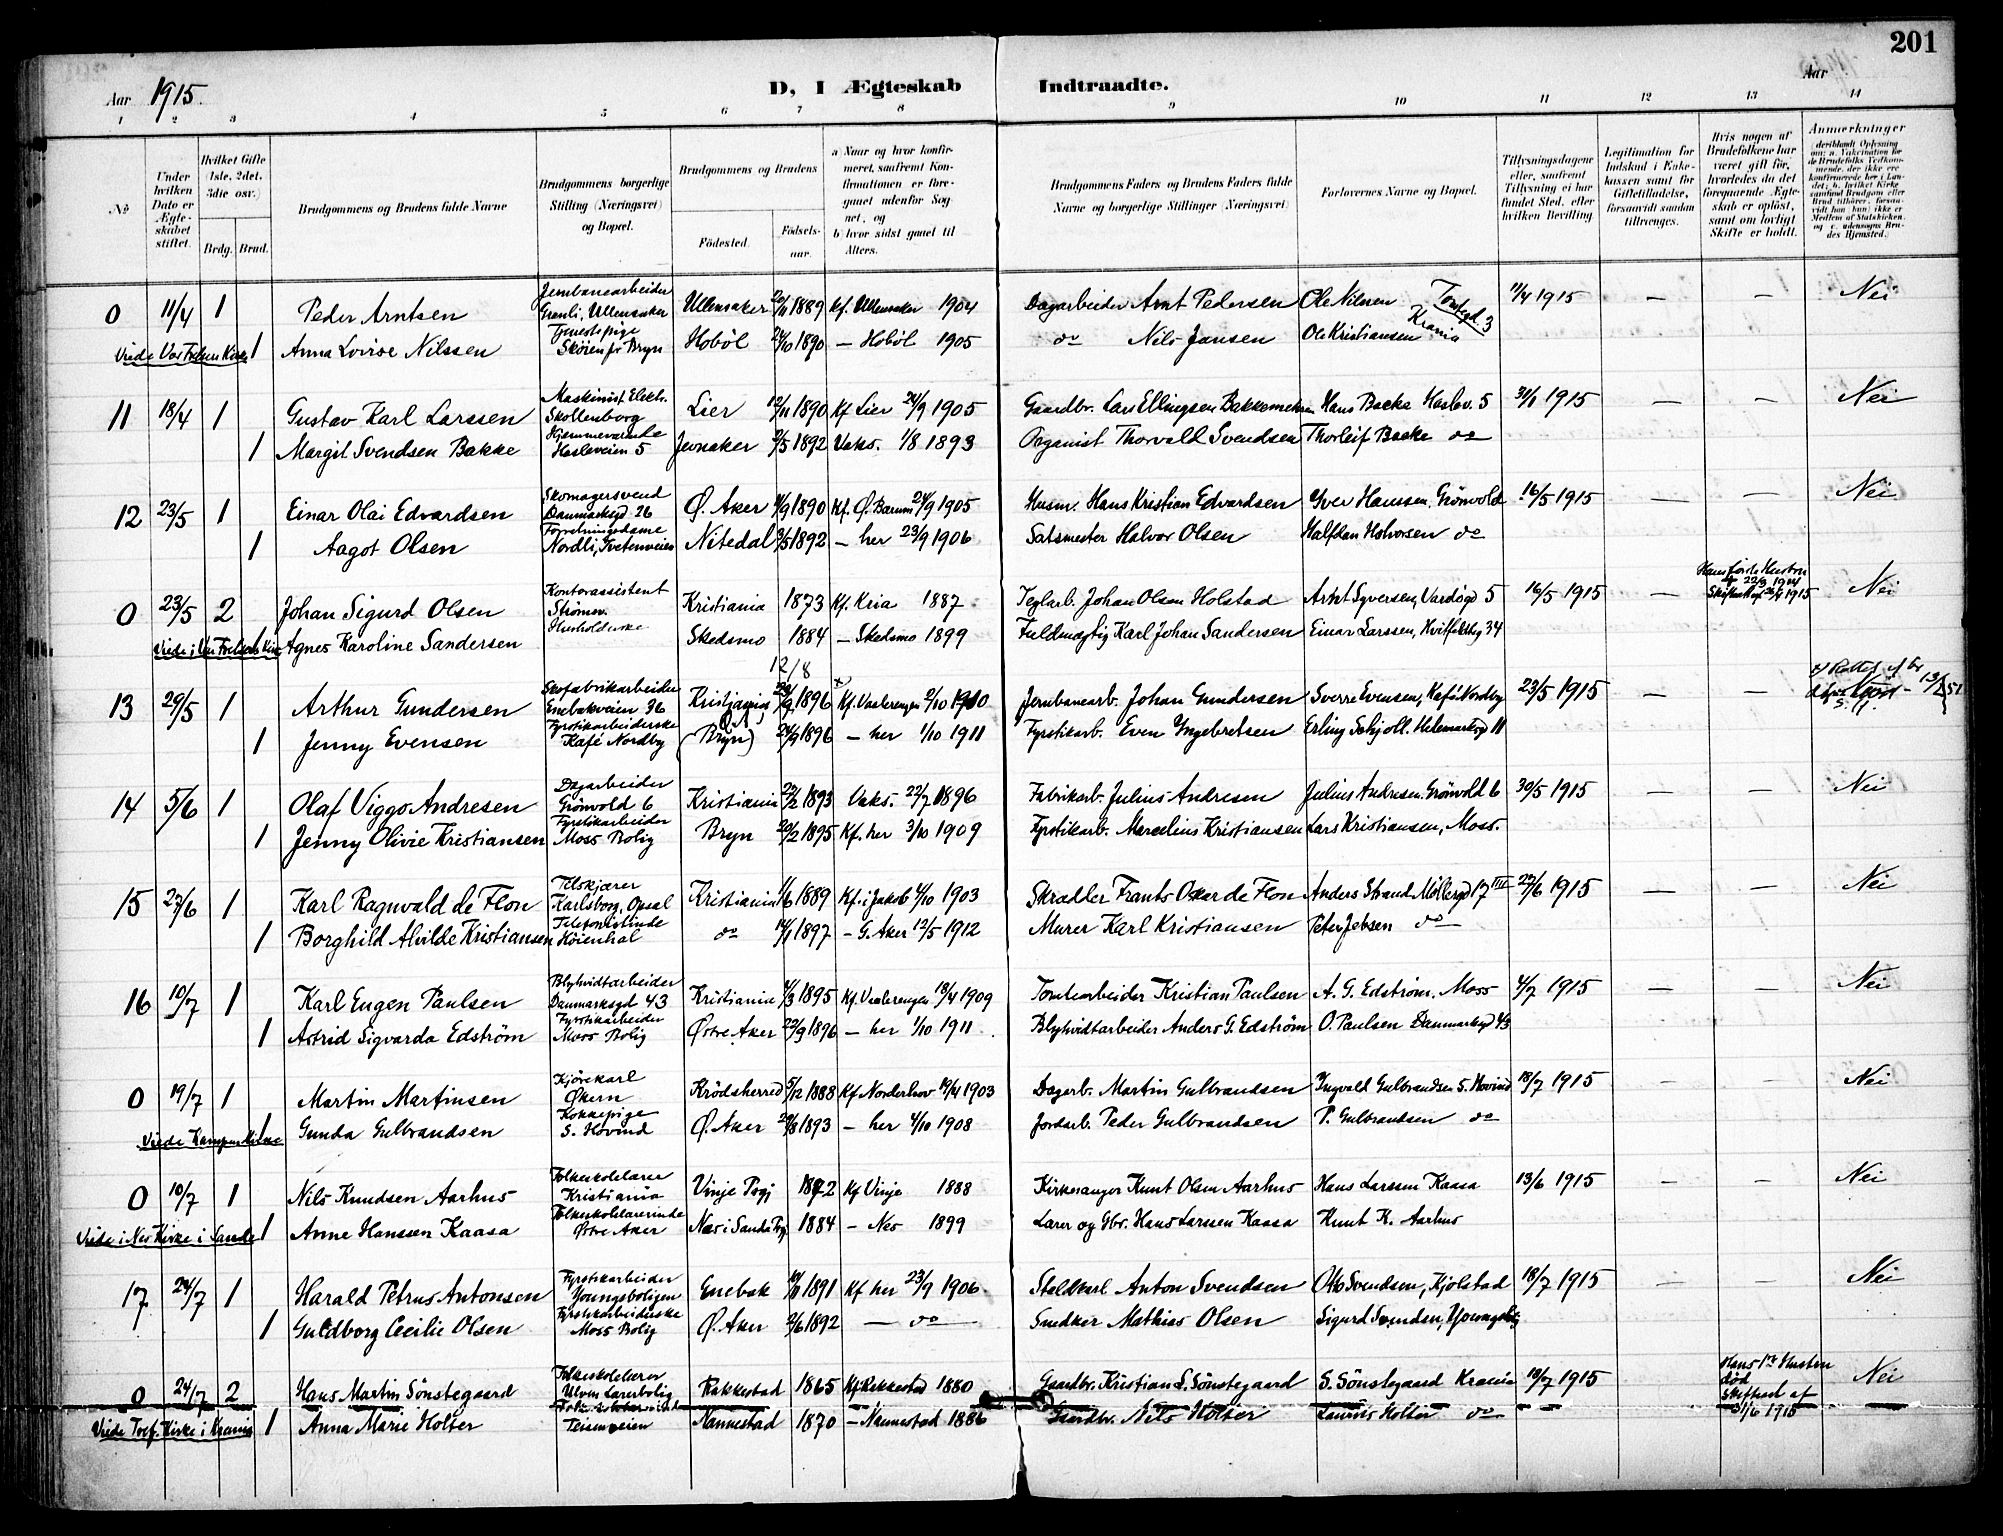 201
Aar 1915. D, I Ægteskab Indtraadte. Aar
1 2 3 4 5 6 7 8 9 10 11 12 13 14
№
Under hvilken Dato er Ægteskabet stiftet.
Hvilket Gifte (1ste, 2det, 3die osv.)
Brdg. Brud.
Brudgommens og Brudens fulde Navne
Brudgommens borgerlige Stilling (Næringsvei) og Bopæl.
Brudgommens og Brudens
Fødested. Fødselsaar.
a) Naar og hvor konfirmeret, saafremt Konfirmationen er foregaaet udenfor Sognet, og
b) hvor sidst gaaet til Alters.
Brudgommens Faders og Brudens Faders fulde Navne og borgerlige Stillinger (Næringsvei)
Forlovernes Navne og Bopæl.
Tillysningsdagene eller, saafremt Tillysning ei har fundet Sted, efter hvilken Bevilling.
Legitimation for Indskud i Enkekassen samt for Giftetilladelse, forsaavidt saadan tiltrænges.
Hvis nogen af Brudefolkene har været gift før, hvorledes da det foregaaende Ægteskab er opløst, samt om lovligt Skifte er holdt.
Anmerkninger
0 11/4 1 Peder Arntsen Jernbanearbeider Grenli, Ullensaker Ullensaker 20/11 1889 Kf. Ullensaker 1904 Dagarbeider Arnt Pedersen Ole Nilsen Tomtegd. 3 Krania 11/4 1915 — — Nei
Viede Vor Frelsers Kirke 1 Anna Lovise Nilssen Tjenestepige Skøien pr Bryn Hobøl 24/10 1890 — Hobøl 1905 do Nils Jansen Ole Kristiansen
11 18/4 1 Gustav Karl Larssen Maskinist Elektr. Skollenborg Lier 12/11 1890 Kf Lier 24/9 1905 Gaardbr. Lars Ellingsen Hans Backe Haslev. 5 31/1 1915 — — Nei
1 Margit Svendsen Bakke Hjemmeværende Hasleveien 5 Jevnaker 2/5 1892 Vaks. 1/8 1893 Organist Thorvald Svendsen Thorleif Backe do
12 23/5 1 Einar Olai Edvardsen Skomagersvend Danmarksgd 26 Ø. Aker 4/9 1890 Kf. Ø. Bærum 24/9 1905 Husm. Hans Kristian Edvardsen Yver Hanssen, Grønvold 16/5 1915 — — Nei
1 Aagot Olsen Forretningsdame Nordli, Tvetenveien Nitedal 3/5 1892 — her 23/9 1906 Salsmester Halvor Olsen Halfdan Halvorsen do
0 23/5 2 Johan Sigurd Olsen Kontorassistent Strømsv. Kristiania 1873 Kf. Kria 1887. Teglarb. Johan Olsen Holstad Arnt Syversen, Vardøgd 5 16/5 1915 — Hans første Hustru † 22/3 1904 Nei
Viede i Vor Frelsers Kirke Agnes Karoline Sandersen Husholderske Skedsmo 1884 — Skedsmo 1899 Fuldmægtig Karl Johan Sandersen Einar Larssen, Hvitfeldtsg 34
12/8
13 29/5 1 Arthur Gundersen Skofabrikarbeider Enebakveien 36 Kristiania 1896 Kf. Vaalerengen 2/10 1910 Jernbanearb. Johan Gundersen Sverre Evensen, Kafé Nordby 23/5 1915
1 Jenny Evensen Fyrstikarbeiderske Kafé Nordby (Bryn) 24/9 1896 — her 1/10 1911 Fyrstikarb. Even Yngebretsen Erling Schjøll. Helemarksgd 11
14 5/6 1 Olaf Viggo Andresen Dagarbeider Grönvold 6 Kristiania 22/2 1893 Vaks. 22/7 1896 Fabrikarb. Julius Andresen Julius Andresen. Grönvold 6 30/5 1915 — — Nei
1 Jenny Olivie Kristiansen Fyrstikarbeider Moss Bolig Bryn 20/2 1895 Kf. her 3/10 1909 Fyrstikarb. Marcelius Kristiansen Lars Kristiansen, Moss.
15 27/6 1 Karl Ragnvald de Flon Tilskjærer Karlsborg, Opsal Kristiania 1/6 1889 Kf. i Jakob 4/10 1903 Skrædder Frants Oskar de Flon Anders Strand Møllergd 17 III 27/6 1915 — — Nei
1 Borghild Alvilde Kristiansen Telefonistinde Høienhal do 14/1 1897 — G. Aker 12/5 1912 Murer Karl Kristiansen Peter Jebsen do
16 10/7 1 Karl Eugen Paulsen Blyhvidtarbeider Danmarksgd 43 Kristiania 4/3 1895 Kf. Vaalerengen 18/4 1909 Tomtearbeider Kristian Paulsen A. G. Edström. Moss 4/7 1915 — — Nei
1 Astrid Sigvarda Edström Fyrstikarbeider Moss Bolig Østre Aker 22/9 1896 — her 1/10 1911. Blyhvidtarbeider Anders G. Edström O. Paulsen Danmarksgd 43
0 19/7 1 Martin Martinsen Kjörekarl Økern Krödsherred 5/12 1888 Kf. Norderhov 19/4 1903 Dagarb. Martin Gulbrandsen Yngvald Gulbrandsen S. Hovind 18/7 1915 — — Nei
Viede Kampen Kirke 1 Gunda Gulbrandsen Kokkepige S. Hovind Ø. Aker 29/8 1893 — her 4/10 1908 Jordarb. Peder Gulbrandsen P. Gulbrandsen do
0 10/7 1 Nils Knudsen Aarhus Folkeskolelærer Kristiania Vinje Pgj 1872 Kf Vinje 1888 Kirkesanger Knut Olsen Aarhus Hans Larssen Kaasa 13/6 1915 — — Nei
Viede i Nes Kirke i Sande 1 Anne Hanssen Kaasa Folkeskolelærerinde Østre Aker Nes i Sande Pgj 1884 — Nes 1899 Lærer og Gbr. Hans Larssen Kaasa Knut K. Aarhus
17 24/7 1 Harald Petrus Antonsen Fyrstikarbeider Youngsboligen Enebak 10/11 1891 Kf her 23/9 1906. Staldkarl Anton Svendsen Otto Svendsen, Kjölstad 18/7 1915 — — Nei
1 Guldborg Cecilie Olsen Fyrstikarbeiderske Moss Bolig Ø. Aker 2/6 1892 — do — Snedker Mathias Olsen Sigurd Svendsen, Youngsbolig
0 24/7 2 Hans Martin Sønstegaard Folkeskolelærer Ulven Lærerbolig Rakkestad 1865 Kf. Rakkestad 1880 Gaardbr. Kristian S. Sønstegaard S. Sønstegaard Krania 18/7 1915 Hans 1ste Hustru död Skifteat af 31/6 1915 Nei
Viede Tref. Kirke i Krania 1 Anna Marie Holter Teisenveien Nannestad 1870 — Nannestad 1886 Gaardbr. Nils Holter Laurits Holter do